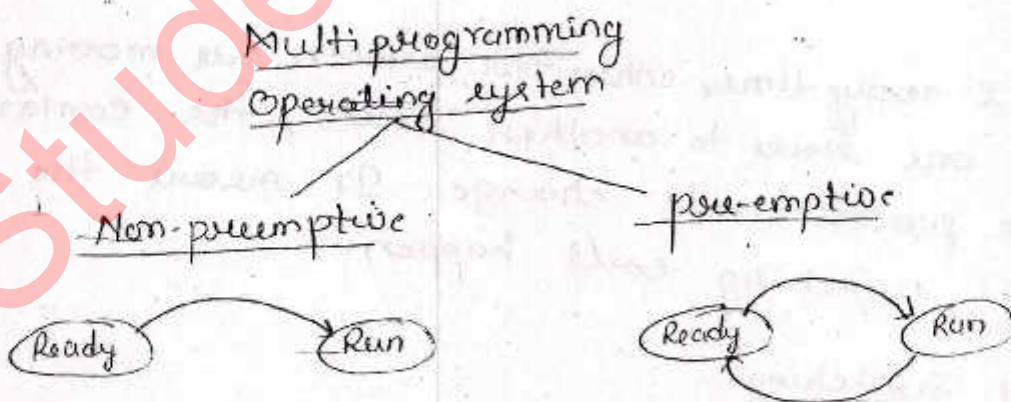 Stude
Multiprogramming
Operating system
Non-preemptive
pre-emptive
Ready
Run
Ready
Run